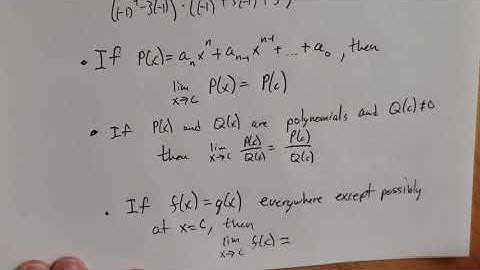 ((-1)⁴-3(-1))·((-1)³+3(-1)²+5)
• If P(x)=aₙxⁿ+aₙ₋₁xⁿ⁻¹+...+a₀, then
lim x→c P(x) = P(c)
• If P(x) and Q(x) are polynomials and Q(c)≠0
then lim x→c P(x)/Q(x) = P(c)/Q(c)
• If f(x)=g(x) everywhere except possibly
at x=c, then
lim x→c f(x) =